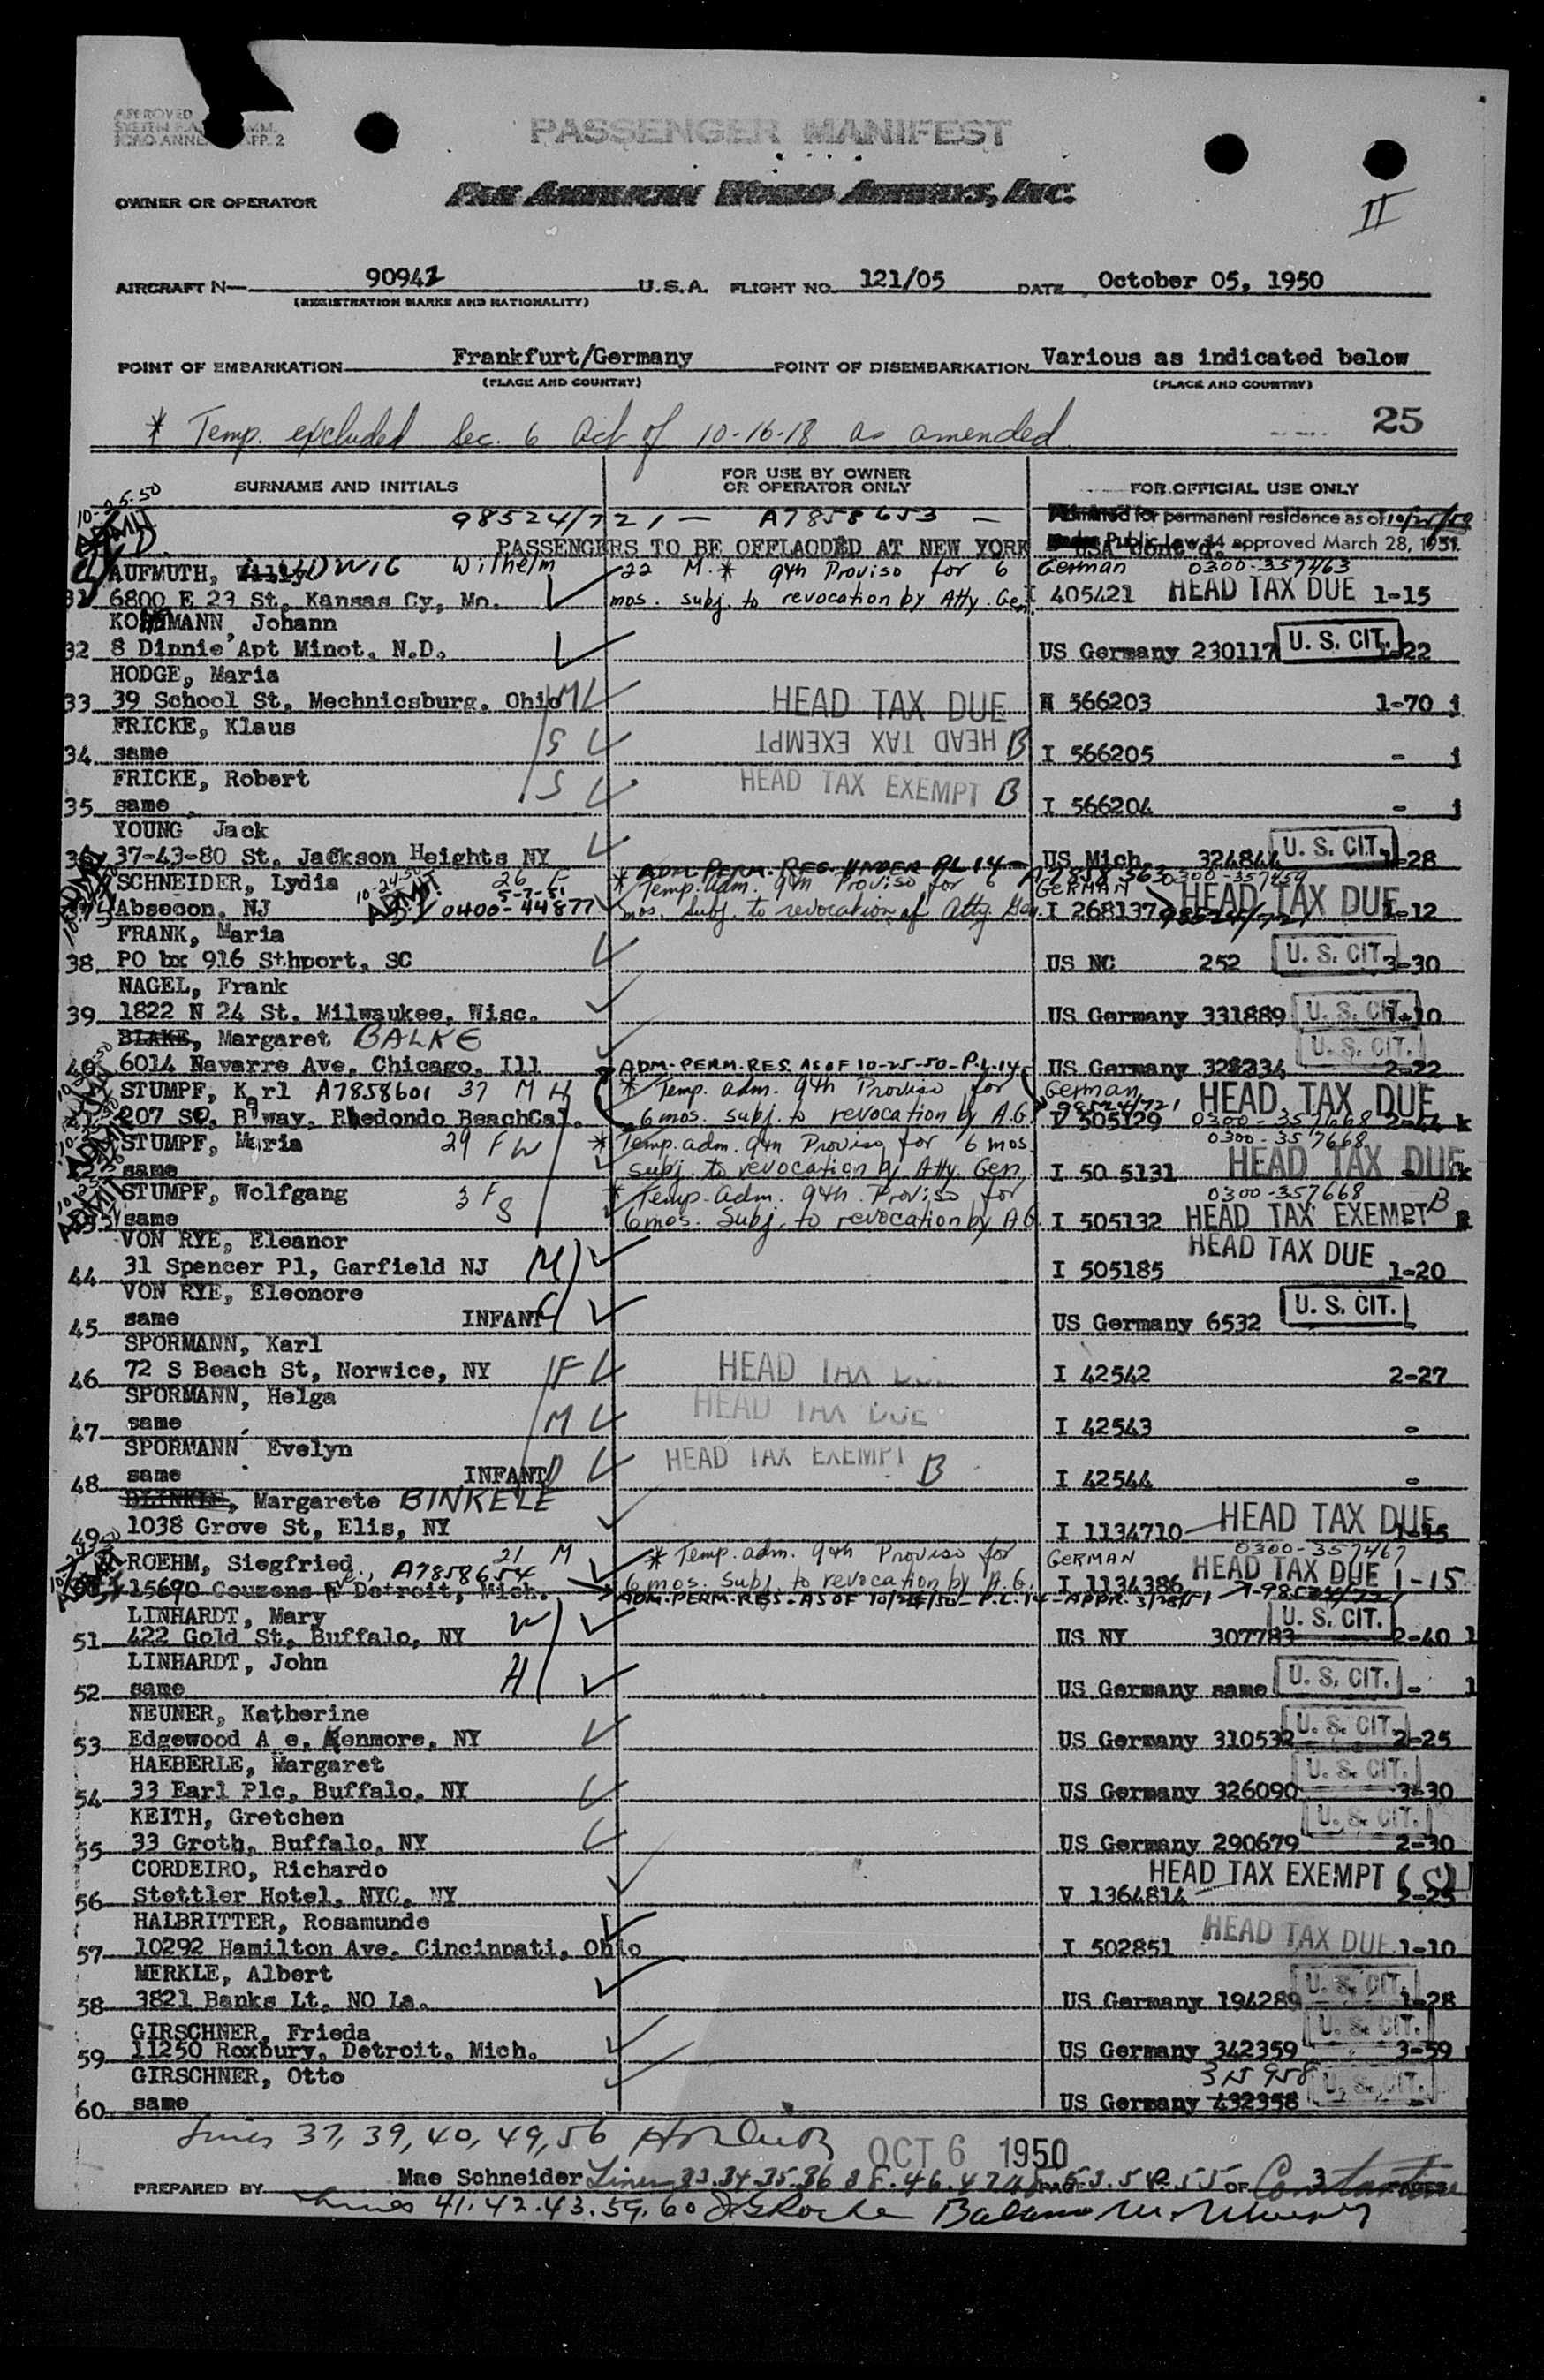 APPROVED
PASSENGER MANIFEST
OWNER OR OPERATOR PAN AMERICAN WORLD AIRWAYS, INC.
II
AIRCRAFT N— 90941 U.S.A. FLIGHT NO. 121/05 DATE October 05, 1950
(REGISTRATION MARKS AND NATIONALITY)
POINT OF EMBARKATION Frankfurt/Germany POINT OF DISEMBARKATION Various as indicated below
(PLACE AND COUNTRY) (PLACE AND COUNTRY)
* Temp. excluded Sec. 6 Act of 10-16-18 as amended 25
SURNAME AND INITIALS FOR USE BY OWNER OR OPERATOR ONLY FOR OFFICIAL USE ONLY
10-25-50 98524/721 — A7858653 — Admitted for permanent residence as of 10/25/50
ADMIT PASSENGERS TO BE OFFLAODED AT NEW YORK Public Law 14 approved March 28, 1951.
AUFMUTH, LUDWIG Wilhelm 22 M. * 9th Proviso for 6 German 0300-357463
6800 E 23 St, Kansas Cy, Mo. mos. subj. to revocation by Atty. Gen I 405421 HEAD TAX DUE 1-15
MANN, Johann
32 8 Dinnie Apt Minot, N.D. US Germany 230117 U.S. CIT. 1-22
HODGE, Maria
33 39 School St, Mechnicsburg, Ohio M HEAD TAX DUE 566203 1-70 j
FRICKE, Klaus
34 same S HEAD TAX EXEMPT B I 566205 - j
FRICKE, Robert
35 same S HEAD TAX EXEMPT B I 566204 - j
YOUNG Jack
37-43-80 St, Jackson Heights NY US Mich. 324844 U.S. CIT. 1-28
ADM. PERM. RES. UNDER PL 14 — A7858563 0300-357459
SCHNEIDER, Lydia 10-24-50 26 F * Temp. adm. 9th Proviso for 6 GERMAN
Absecon, NJ ADMIT 5-7-51 0400-44877 mos. subj. to revocation of Atty Gen. I 268137 98524/721 HEAD TAX DUE 1-12
FRANK, Maria
38 PO box 916 Sthport, SC US NC 252 U.S. CIT. 3-30
NAGEL, Frank
39 1822 N 24 St, Milwaukee, Wisc. US Germany 331889 U.S. CIT. 1-10
BLAKE, Margaret BALKE
40 6014 Navarre Ave, Chicago, Ill US Germany 328234 U.S. CIT. 2-22
ADM. PERM. RES. AS OF 10-25-50 - P.L. 14
STUMPF, Karl A7858601 37 M H * Temp. adm. 9th Proviso for German 98524/721
207 SO, B'way, Rhedondo BeachCal. 6 mos. subj. to revocation by A.G. V 505129 HEAD TAX DUE 0300-357668 2-44 k
STUMPF, Maria 29 F W * Temp. adm. 9th Proviso for 6 mos. 0300-357668
same subj. to revocation by Atty. Gen. I 50 5131 HEAD TAX DUE k
STUMPF, Wolfgang 3 F S * Temp. Adm. 9th Proviso for 0300-357668
same 6 mos. Subj. to revocation by A.G. I 505132 HEAD TAX EXEMPT B
VON RYE, Eleanor
44 31 Spencer Pl, Garfield NJ M I 505185 HEAD TAX DUE 1-20
VON RYE, Eleonore
45 same INFANT US Germany 6532 U.S. CIT. -
SPORMANN, Karl
46 72 S Beach St, Norwice, NY F HEAD TAX DUE I 42542 2-27
SPORMANN, Helga
47 same M HEAD TAX DUE I 42543 -
SPORMANN Evelyn
48 same INFANT D HEAD TAX EXEMPT B I 42544 -
Margarete BINKELE
49 1038 Grove St, Elis, NY I 1134710 HEAD TAX DUE 1-15
ROEHM, Siegfried A7858654 21 M * Temp. adm. 9th Proviso for GERMAN 0300-357467
15690 Couzens Detroit, Mich. 6 mos. subj. to revocation by A.G. I 1134386 HEAD TAX DUE 1-15
ADM. PERM. RES. - AS OF 10/25/50 - P.L. 14 - APPR. 3/28/51 98524/721
LINHARDT, Mary
51 422 Gold St, Buffalo, NY W US NY 307783 U.S. CIT. 2-40 l
LINHARDT, John
52 same H US Germany same U.S. CIT. - l
NEUNER, Katherine
53 Edgewood A e, Kenmore, NY US Germany 310532 U.S. CIT. 2-25
HAEBERLE, Margaret
54 33 Earl Plc, Buffalo, NY US Germany 326090 U.S. CIT. 3-30
KEITH, Gretchen
55 33 Groth, Buffalo, NY US Germany 290679 U.S. CIT. 2-30
CORDEIRO, Richardo HEAD TAX EXEMPT (C)
56 Stettler Hotel, NYC, NY V 1364814 2-25
HALBRITTER, Rosamunde
57 10292 Hamilton Ave, Cincinnati, Ohio I 502851 HEAD TAX DUE 1-10
MERKLE, Albert
58 3821 Banks Lt, NO La. US Germany 194289 U.S. CIT. 1-28
GIRSCHNER, Frieda
59 11250 Roxbury, Detroit, Mich. US Germany 342359 U.S. CIT. 3-59
GIRSCHNER, Otto 315958
60 same US Germany 432358 U.S. CIT.
Lines 37, 39, 40, 49, 56 OCT 6 1950
PREPARED BY Mae Schneider Lines 33.34.35.36 38.46.47 53.54.55 OF 3
Lines 41.42.43.59.60